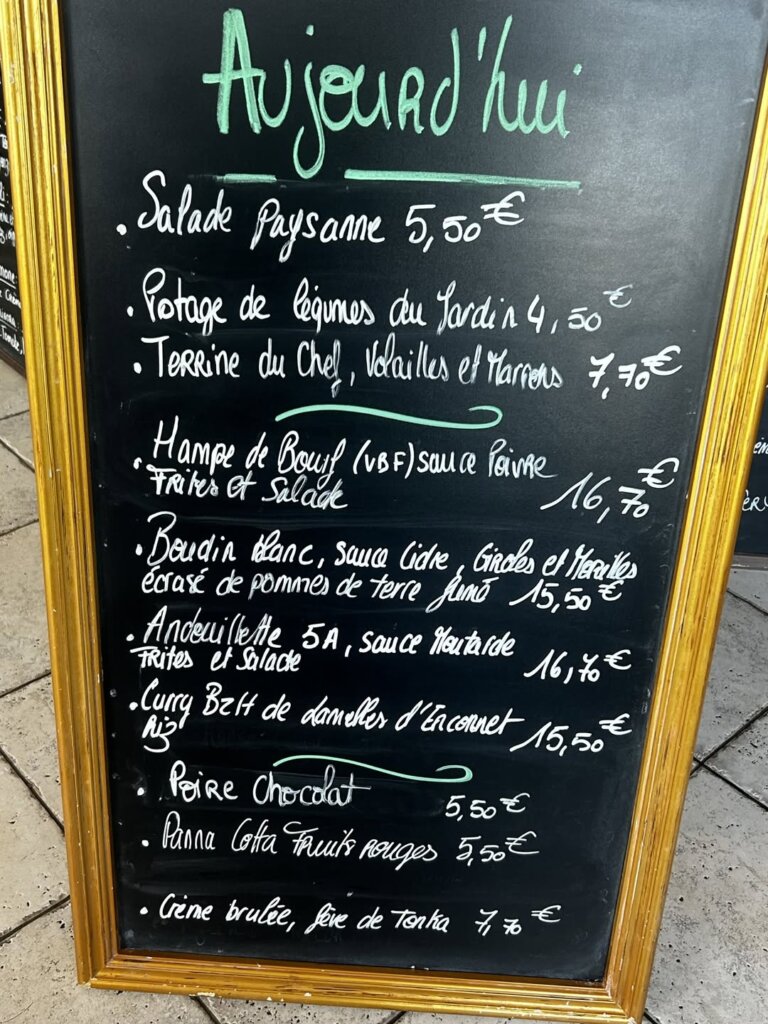 Aujourd'hui
. Salade Paysanne 5,50€
. Potage de légumes du Jardin 4,50€
. Terrine du Chef, Volailles et Marrons 7,70€
. Hampe de Bœuf (VBF) sauce Poivre
Frites et Salade 16,70€
. Boudin blanc, sauce Cidre, Girolles et Morilles
écrasé de pommes de terre fumé 15,50€
. Andouillette 5A, sauce Moutarde
Frites et Salade 16,70€
. Curry de lamelles d'Encornet
Riz 15,50€
. Poire Chocolat 5,50€
. Panna Cotta Fruits rouges 5,50€
. Crème brulée, fève de Tonka 7,70€